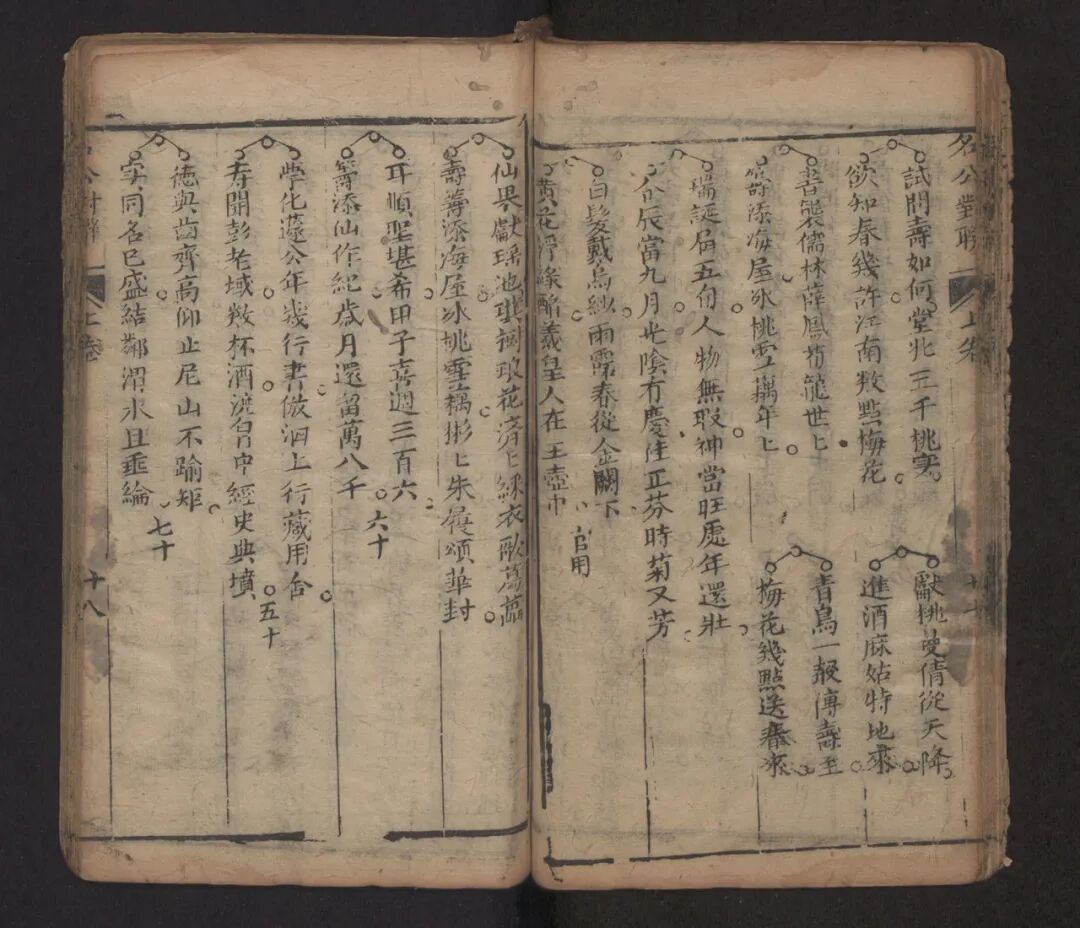 名公對聯
上卷
試問壽如何堂北三千桃實
欲知春幾許江南數點梅花
獻桃曼倩從天降
進酒麻姑特地來
書裝儒林薛鳳荀龍世匕
籌添海屋冰桃雪藕年匕
青鳥一聲傳壽至
梅花幾點送春來
瑞誕屆五旬人物無瑕神當旺處年還壯
辰當九月光陰有慶佳正芬時菊又芳
白髮戴烏紗雨露春從金闕下
黃花浮綠酩羲皇人在玉壺中
官用
仙果獻瑤池琪樹琅花濟匕綵衣歌
壽籌添海屋冰桃雪藕彬匕朱履頌華封
耳順聖堪希甲子喜週三百六
籌添仙作紀歲月還留萬八千
六十
學化蘧公年幾行書倣泗上行藏用舍
壽開彭老域數杯酒澆胷中經史典墳
五十
德與齒齊高仰止尼山不踰矩
實同名已盛結鄰渭水且垂綸
七十
上卷
十八